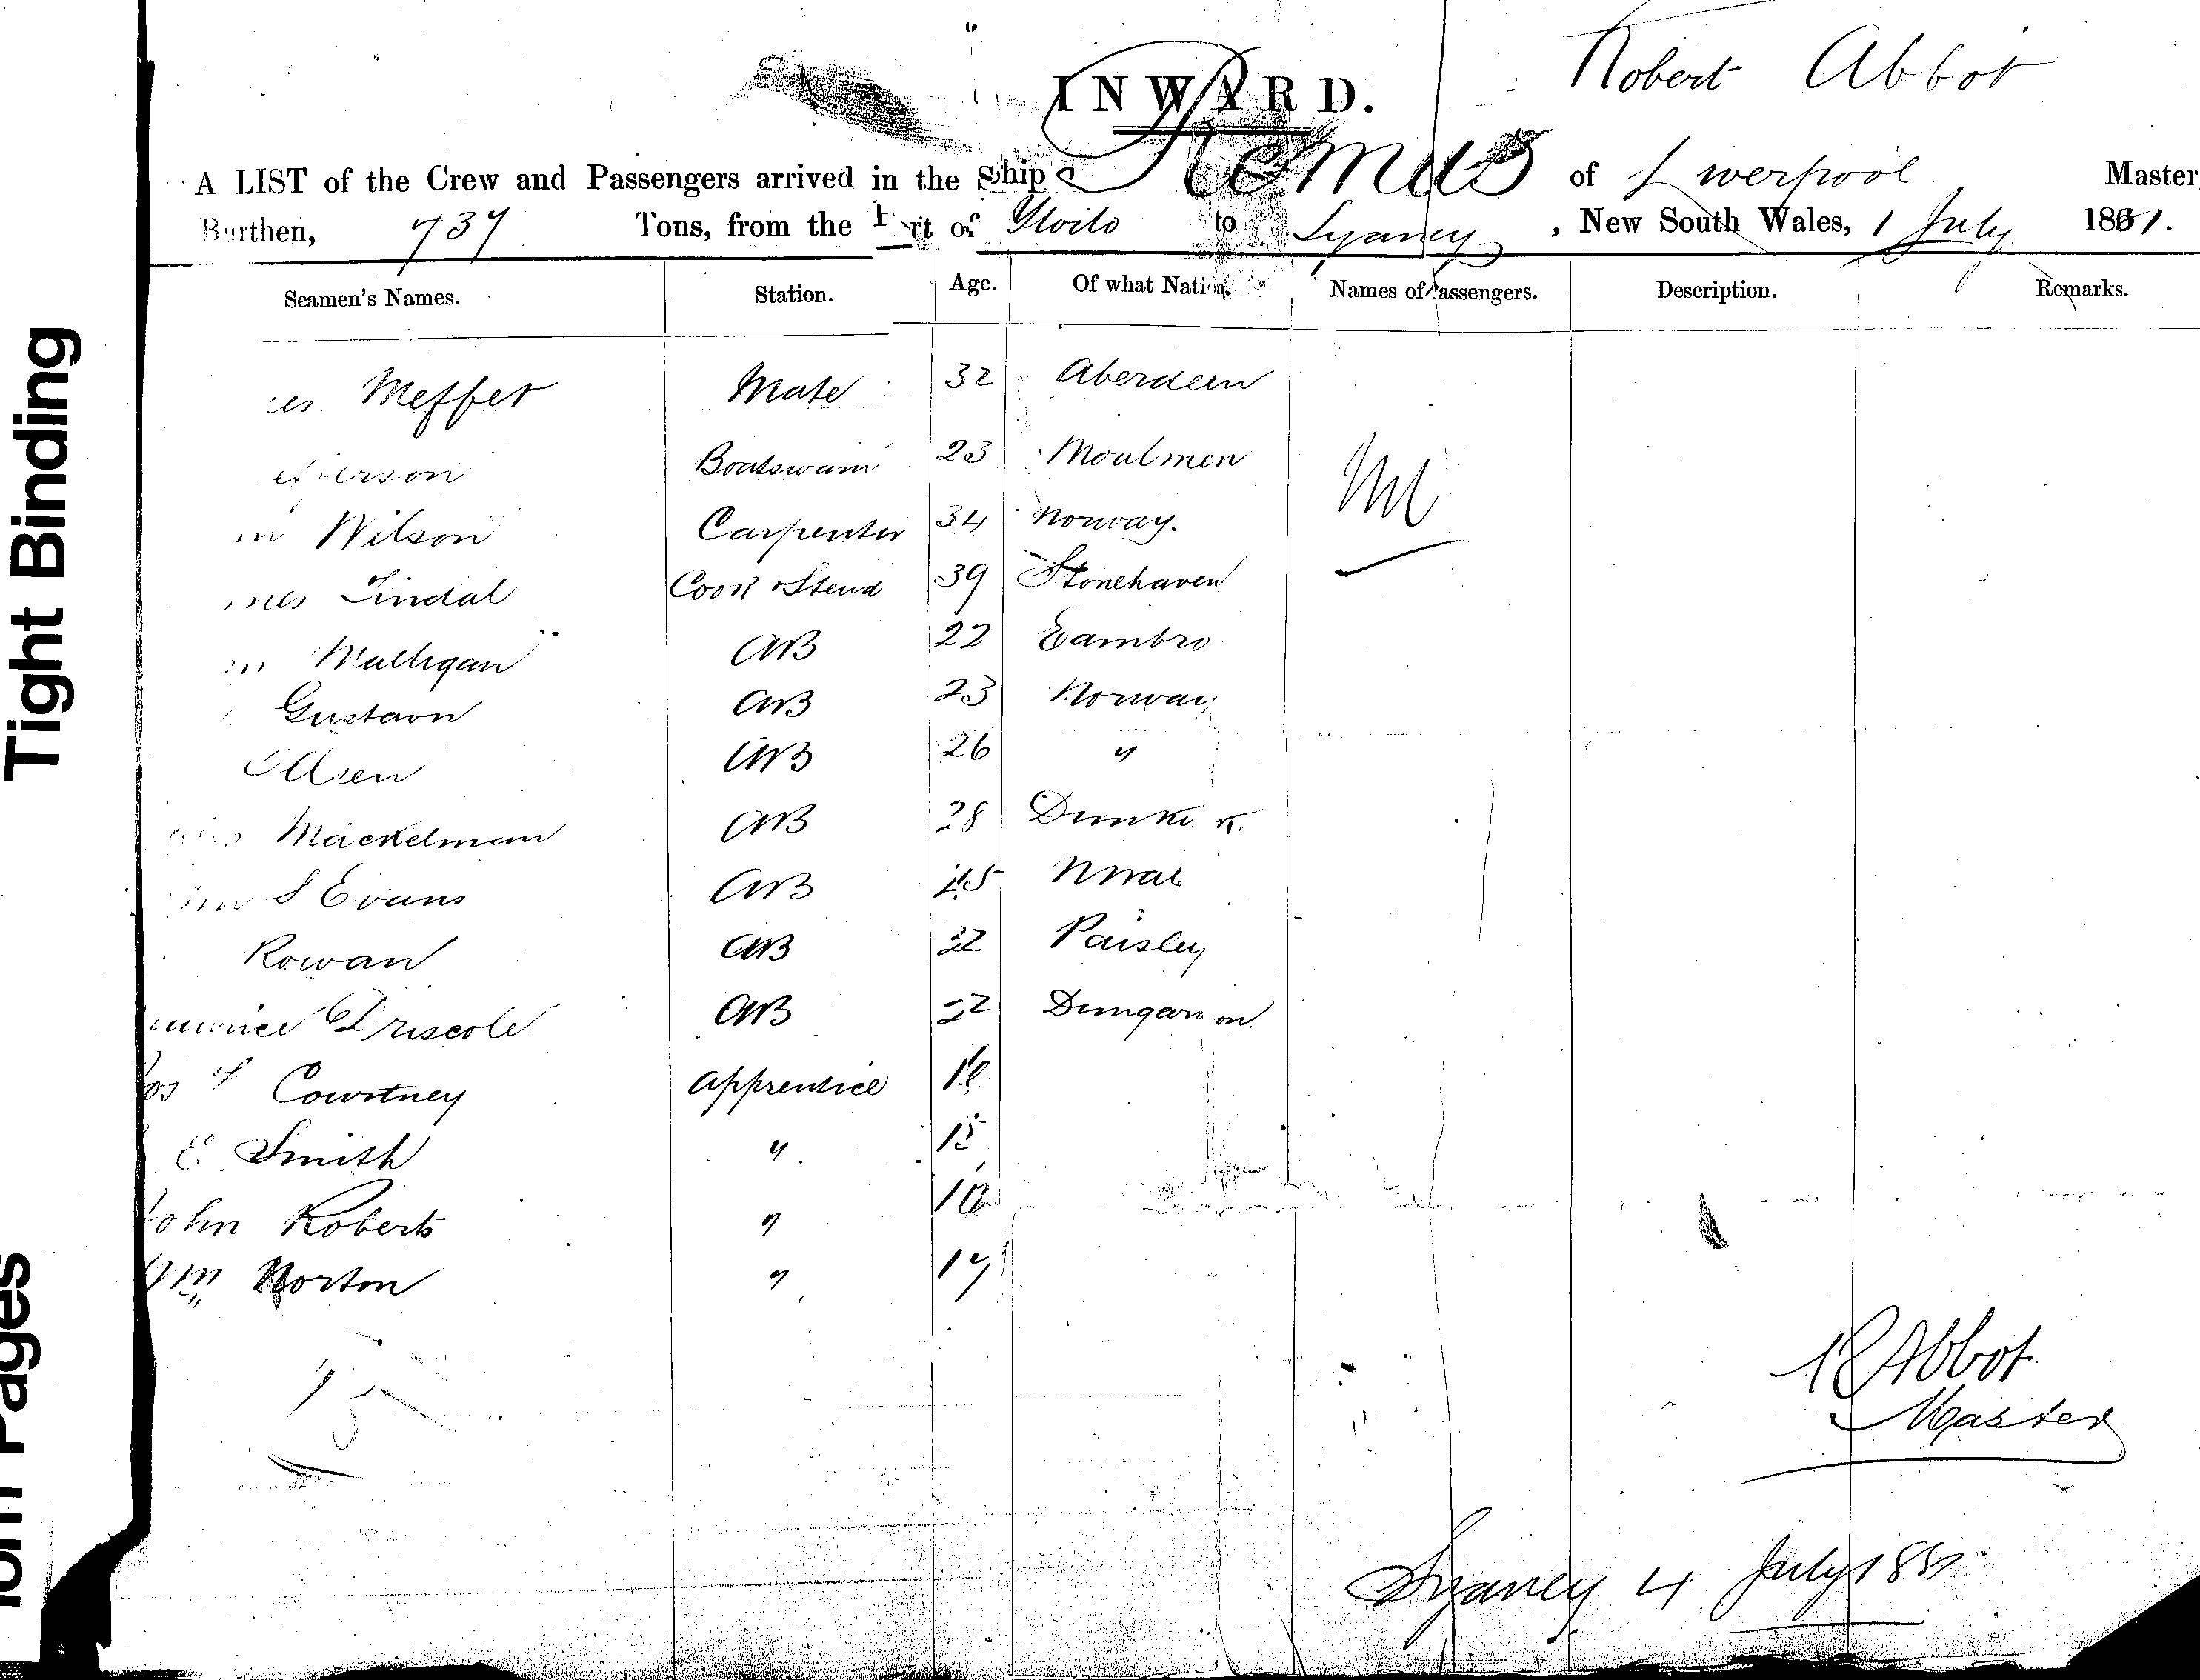 Tight Binding
Pages
Robert Abbot
INWARD.
A LIST of the Crew and Passengers arrived in the Ship Remus of Liverpool Master
Burthen, 737 Tons, from the Port of Yloilo to Sydney, New South Wales, 1 July 1881.
Seamen's Names. Station. Age. Of what Nation. Names of Passengers. Description. Remarks.
Meffet Mate 32 Aberdeen
Boatswain 23 Moulmen
Wilson Carpenter 34 Norway.
Lindal Cook & Steud 39 Stonehaven
Mulligan AB 22 Eambro
Gustavn AB 23 Norway
Olsen AB 26 "
Mackelman AB 28
S Evans AB
Rowan AB 22 Paisley
Maurice Driscole AB 22
Courtney Apprentice 16
E Smith " 15
John Roberts " 16
Wm Norton " 17
Nil
15
R Abbot
Master
Sydney 4 July 1881